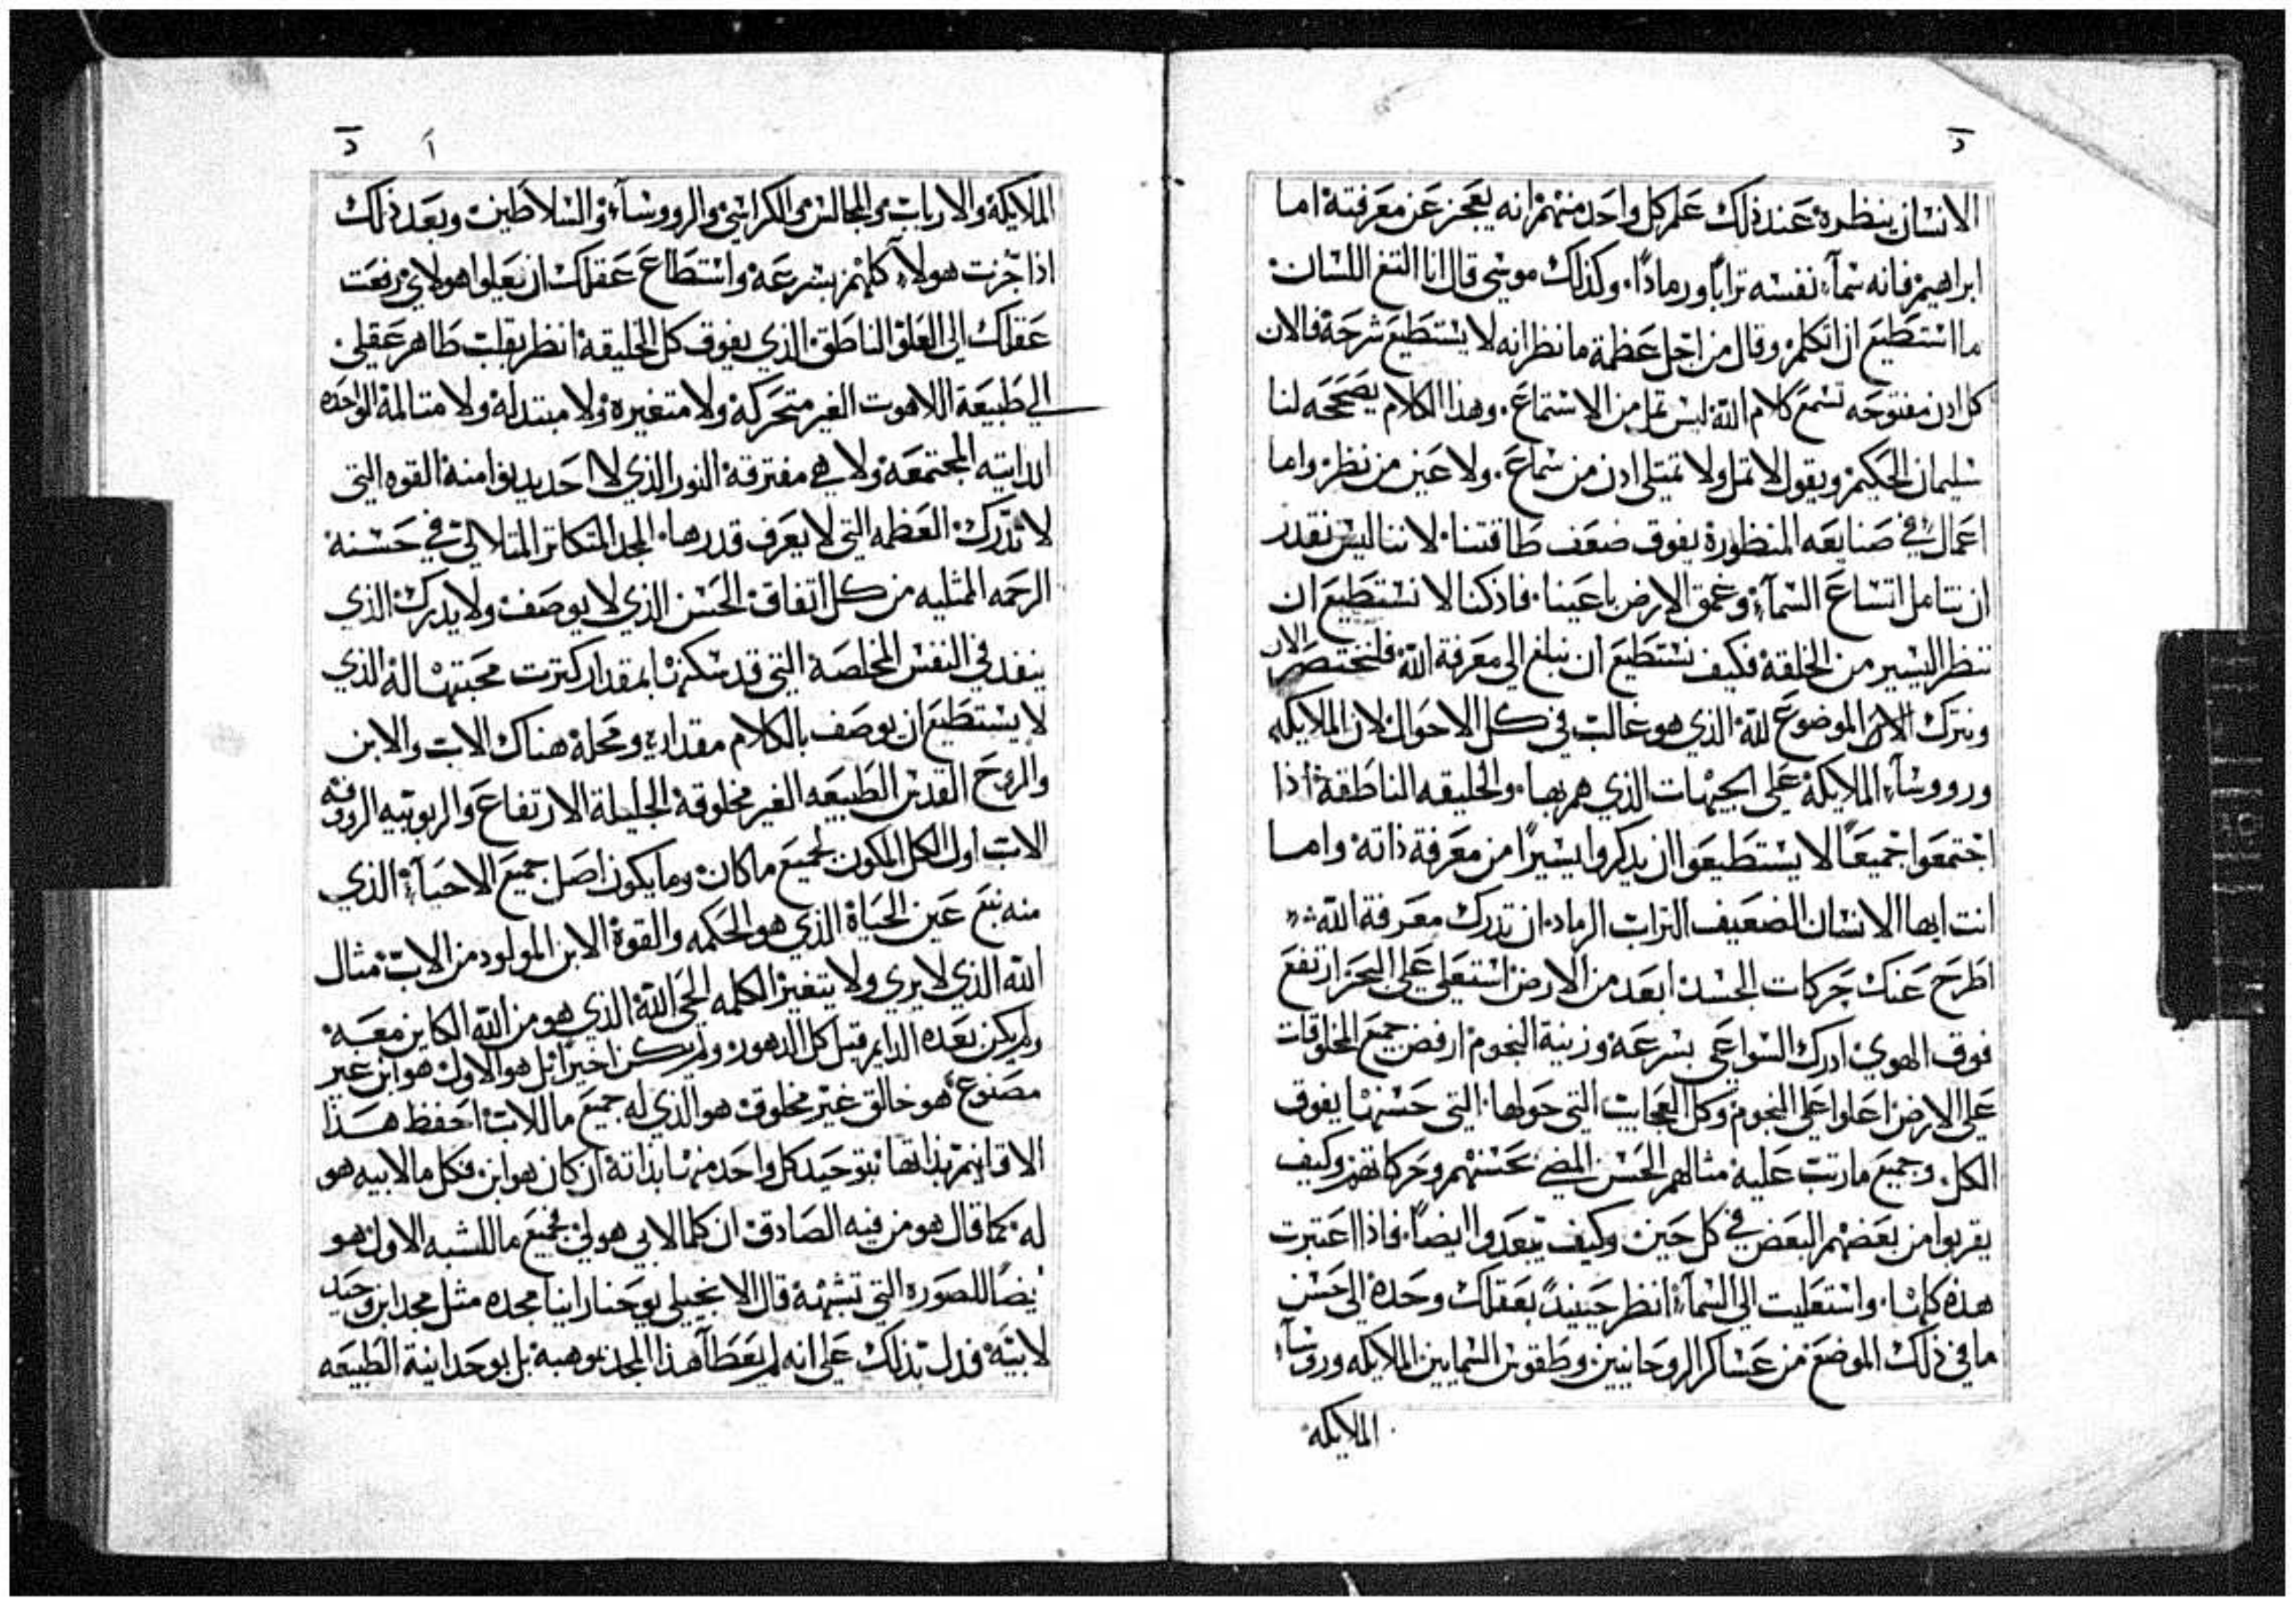 د
الانسان ينظره عند ذلك علم كل واحد منهم انه يعجز عن معرفته اما
ابراهيم فانه سماء نفسه تراباً ورماداً. وكذلك موسى قال انا التغ اللسان
ما استطيع ان اتكلم وقال من اجل عظمة ما نظر انه لا يستطيع شرحه فالان
كل ادن مفتوحه تسمع كلام الله ليس تمل من الاستماع. وهذا الكلام يصححه لنا
سليمان الحكيم ويقول لا تمل ولا تمتلى ادن من سماع. ولا عين من نظر واما
اعمال في صنايعه المنظورة يفوق ضعف طاقتنا. لاننا ليس نقدر
ان نتامل اتساع السماء وعمق الارض باعيننا. فاذ كنا لا نستطيع ان
ننظر اليسير من الخلقة فكيف نستطيع ان نبلغ الى معرفة الله فلنختصر الان
ونترك الموضوع لله الذي هو غالب في كل الاحوال لان الملايكه
وروساء الملايكة على الجهات الذي هم بها. والخليقه الناطقة اذا
اجتمعوا جميعاً لا يستطيعوا ان يدكروا يسيراً من معرفة ذاته واما
انت ايها الانسان الضعيف التراب الرماد. ان تدرك معرفة الله
اطرح عنك حركات الجسد ابعد من الارض استعلي على البحر ارتفع
فوق الهوي ادرك السواعي بسرعه وزينة النجوم ارفض جميع المخلوقات
على الارض اعلوا على النجوم وكل العجايب التي حولها. التي حسنها يفوق
الكل وجميع ما رتب عليه مثالهم الحسن المضي بحسنهم وحركاتهم وكيف
يقربوا من بعضهم البعض في كل حين وكيف يتبعدوا ايضاً. فاذا اعتبرت
هذه كلها. واستعليت الى السماء انظر حينيذ بعقلك وحده الى حسن
ما في ذلك الموضع من عساكر الروحانيين وطقوس السمايين الملايكه وروساء
الملايكة
ا د
الملايكة والارباب والمجالس والكراسي والرووساء والسلاطين وبعد ذلك
اذا جزت هولاء كلهم بسرعة واستطاع عقلك ان يعلوا هولاي رفعت
عقلك الى العلو الناطق الذي يفوق كل الخليقة انظر بقلب طاهر عقلي
الي طبيعة اللاهوت الغير متحركة ولا متغيره ولا مبتدله ولا متالمة الواحده
الداتيه المجتمعه ولا هي مفترقة النور الذي لا احد يدنوا منه القوه التي
لا تدرك العظمه التي لا يعرف قدرها. المجد المتكاتر المتلالي في حسنه
الرحمه المثليه من كل اتفاق الحسن الذي لا يوصف ولا يدرك الذي
ينفد في النفس المخلصة التي قد سكرت بمقدار كترت محبتها له الذي
لا يستطيع ان يوصف بالكلام مقداره ومحله هناك الاب والابن
والروح القدس الطبيعه الغير مخلوقة الجليلة الارتفاع والربوبيه الرووفه
الاب اول الكل المكون لجميع ما كان وما يكون اصل جميع الاحياء الذي
منه نبع عين الحياة الذي هو الحكمه والقوة الابن المولود من الاب مثال
الله الذي لا يري ولا يتغير الكلمه الحي الله الذي هو من الله الكاين معه
ولم يكن بعده الدايم قبل كل الدهور ولم يكن اخيراً بل هو الاول هو ابن غير
مصنوع هو خالق غير مخلوق هو الذي له جميع ما للاب احفظ هذا
الاقانيم بذاتها بتوحيد كل واحد منها بذاته ان كان هو ابن فكل ما لابيه هو
له كما قال هو من فيه الصادق ان كلما لابي هو لي فجميع ما للشبه الاول هو
ايضاً للصورة التي تشبهه قال الانجيلي يوحنا راينا مجده مثل مجد ابن وحيد
لابيه فدل بذلك على انه لم يعطا هذا المجد بموهبة بل بوحدانية الطبيعه